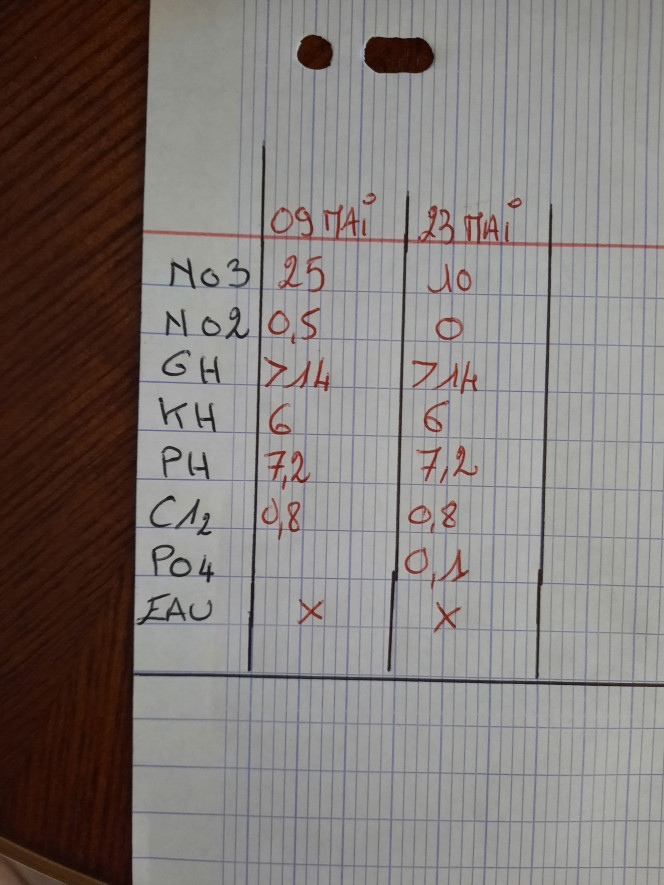 09 MAi 23 MAi
NO3 25 10
NO2 0,5 0
GH >14 >14
KH 6 6
PH 7,2 7,2
Cl2 0,8 0,8
PO4 0,1
EAU X X